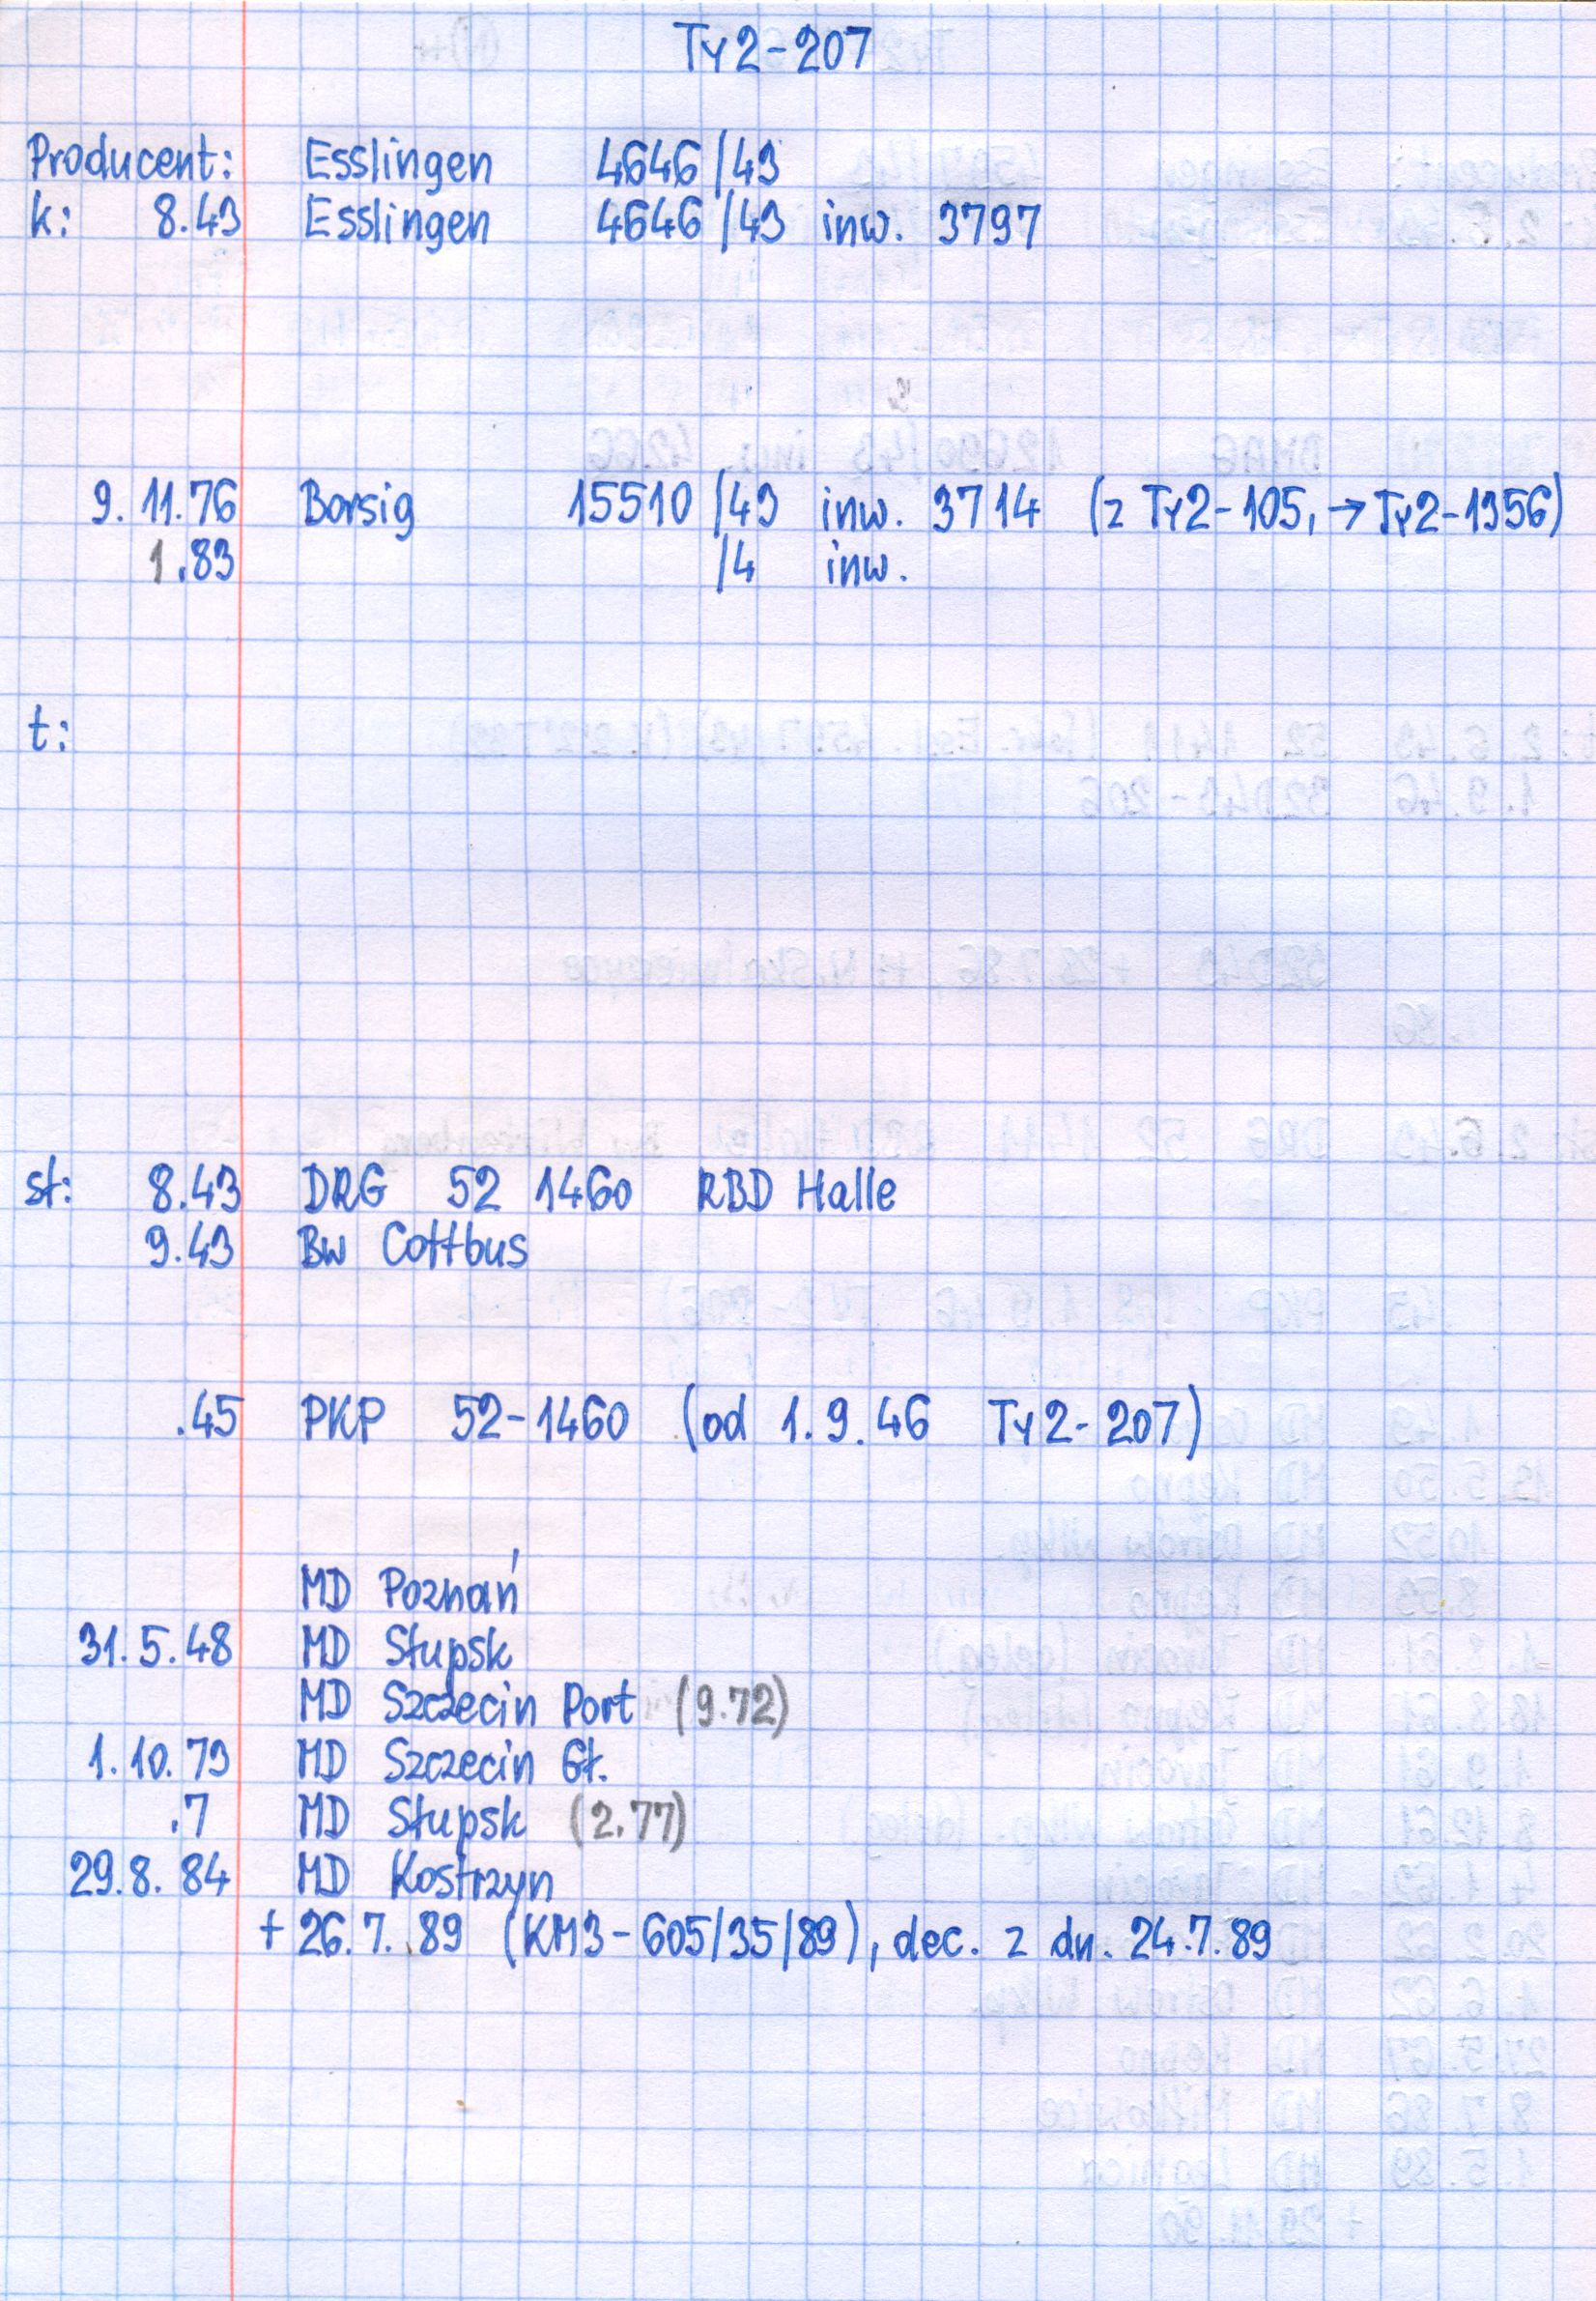 Ty2-207
Producent: Esslingen 4646/43
k: 8.43 Esslingen 4646/43 inw. 3797
9.11.76 Borsig 15510/43 inw. 3714 (z Ty2-105, → Ty2-1356)
1.83 /4 inw.
t:
st: 8.43 DRG 52 1460 RBD Halle
9.43 Bw Cottbus
.45 PKP 52-1460 (od 1.9.46 Ty2-207)
MD Poznań
31.5.48 MD Słupsk
MD Szczecin Port (9.72)
1.10.73 MD Szczecin Gł.
.7 MD Słupsk (2.77)
29.8.84 MD Kostrzyn
+ 26.7.89 (KM3-605/35/89), dec. z dn. 24.7.89